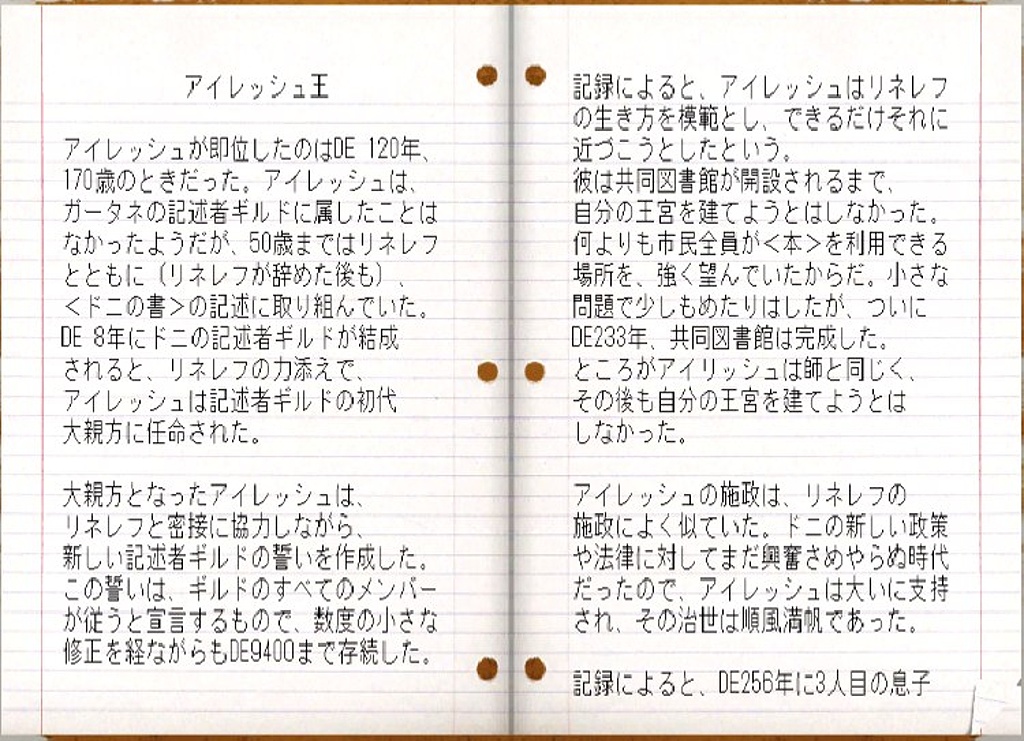 アイレッシュ王
アイレッシュが即位したのはDE 120年、
170歳のときだった。アイレッシュは、
ガータネの記述者ギルドに属したことは
なかったようだが、50歳まではリネレフ
とともに（リネレフが辞めた後も）、
＜ドニの書＞の記述に取り組んでいた。
DE 8年にドニの記述者ギルドが結成
されると、リネレフの力添えで、
アイレッシュは記述者ギルドの初代
大親方に任命された。
大親方となったアイレッシュは、
リネレフと密接に協力しながら、
新しい記述者ギルドの誓いを作成した。
この誓いは、ギルドのすべてのメンバー
が従うと宣言するもので、数度の小さな
修正を経ながらもDE9400まで存続した。
記録によると、アイレッシュはリネレフ
の生き方を模範とし、できるだけそれに
近づこうとしたという。
彼は共同図書館が開設されるまで、
自分の王宮を建てようとはしなかった。
何よりも市民全員が＜本＞を利用できる
場所を、強く望んでいたからだ。小さな
問題で少しもめたりはしたが、ついに
DE233年、共同図書館は完成した。
ところがアイリッシュは師と同じく、
その後も自分の王宮を建てようとは
しなかった。
アイレッシュの施政は、リネレフの
施政によく似ていた。ドニの新しい政策
や法律に対してまだ興奮さめやらぬ時代
だったので、アイレッシュは大いに支持
され、その治世は順風満帆であった。
記録によると、DE256年に3人目の息子